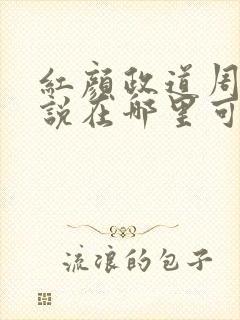 紅顏政道周
說在哪里可
流浪的包子